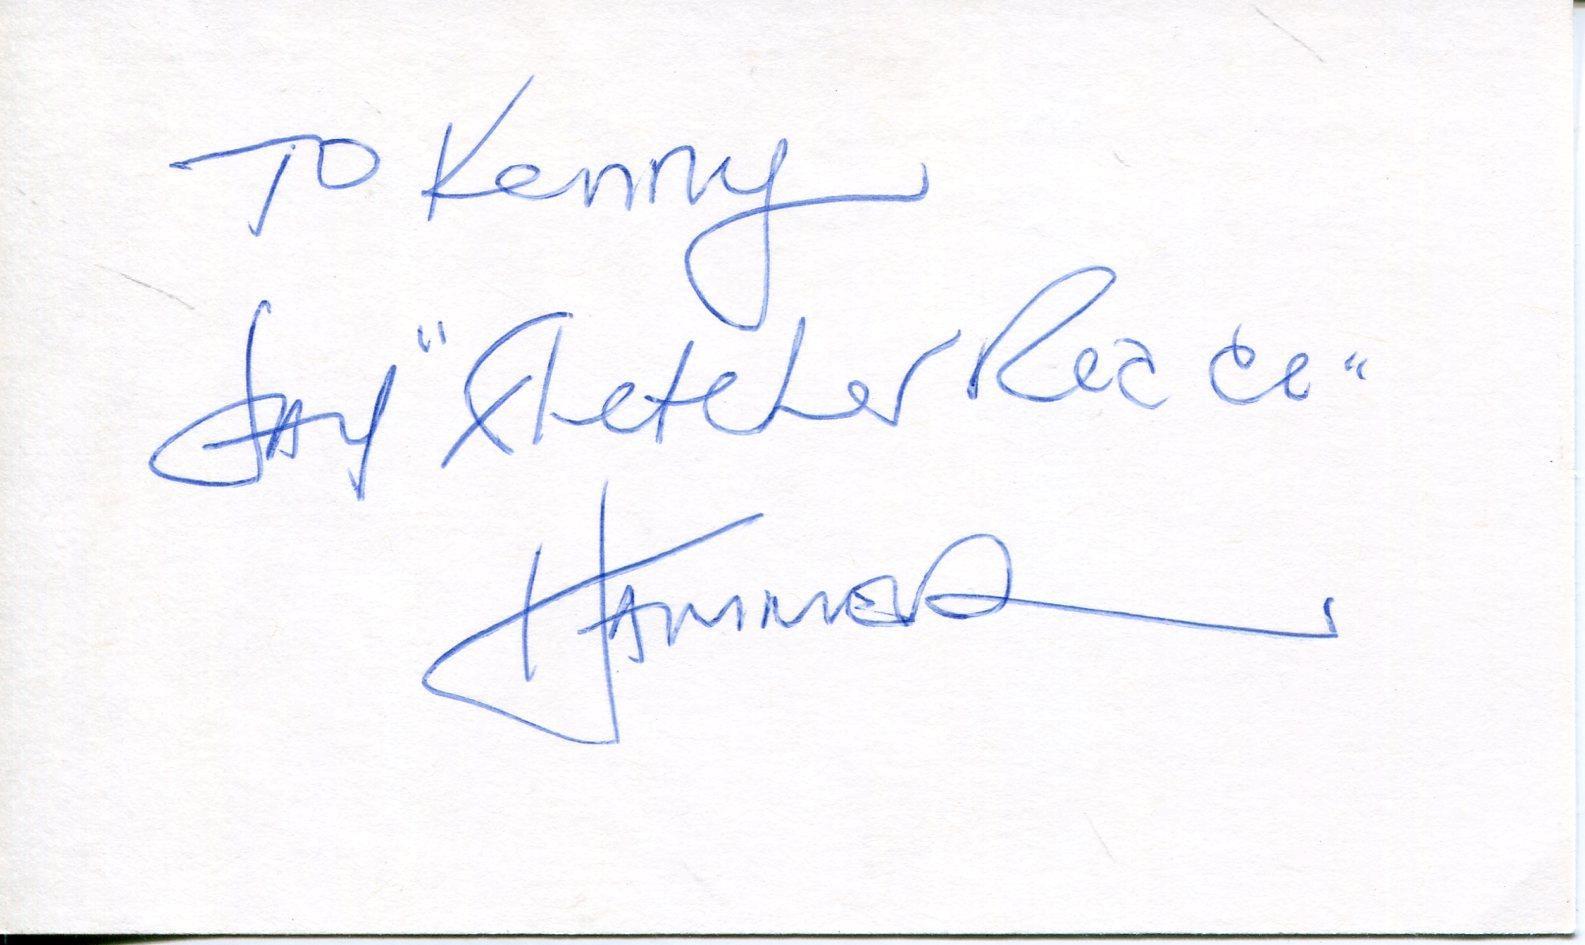 TO Kenny
JAY "Fletcher Reade"
HAMMER